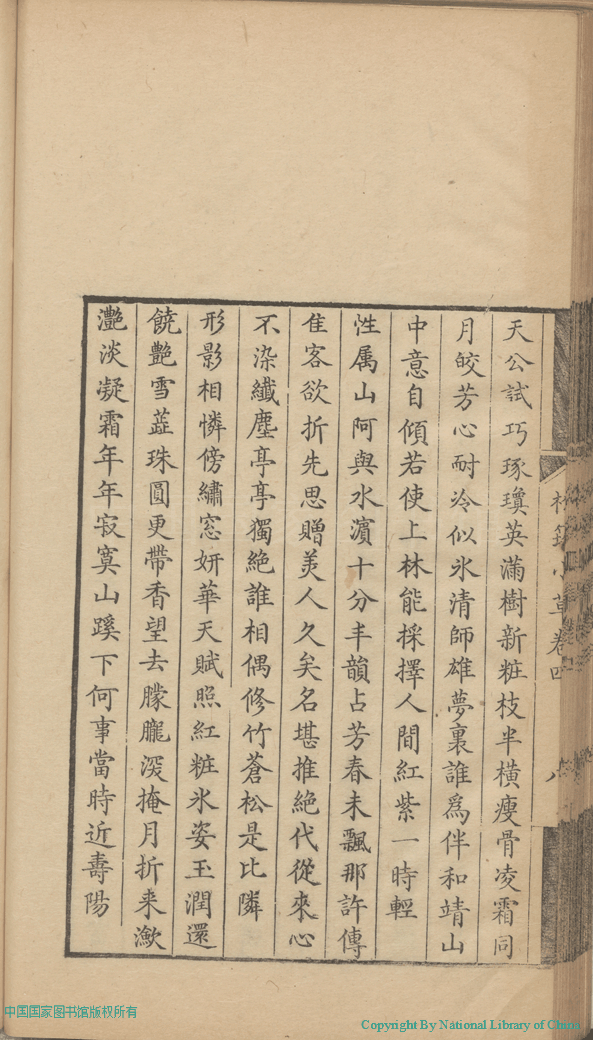 小草卷四
八
天公試巧琢瓊英滿樹新粧枝半橫瘦骨凌霜同
月皎芳心耐冷似氷清師雄夢裏誰爲伴和靖山
中意自傾若使上林能採擇人間紅紫一時輕
性属山阿與水濵十分丰韻占芳春未飄那許傳
隹客欲折先思贈美人久矣名堪推絶代從來心
不染纖塵亭亭獨絶誰相偶修竹蒼松是比隣
形影相憐傍繡窓妍華天賦照紅粧氷姿玉潤還
饒艷雪蕋珠圓更帶香望去朦朧深掩月折来潄
灔淡凝霜年年寂寞山蹊下何事當時近壽陽
中国国家图书馆版权所有
Copyright By National Library of China